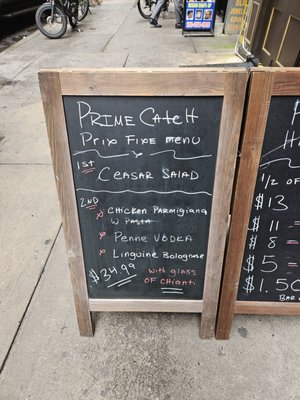 PRIME CATCH
PRIX FIXE MENU
1st
CEASAR SALAD
2ND
x CHICKEN PARMIGIANA
W PASTA
x PENNE VODKA
x LINGUINE BOLOGNASE
$34.99
WITH GLASS
OF CHIANTI
1/2 OF
$ 13
$ 11
$ 8
$ 5
$ 1.50
BAR